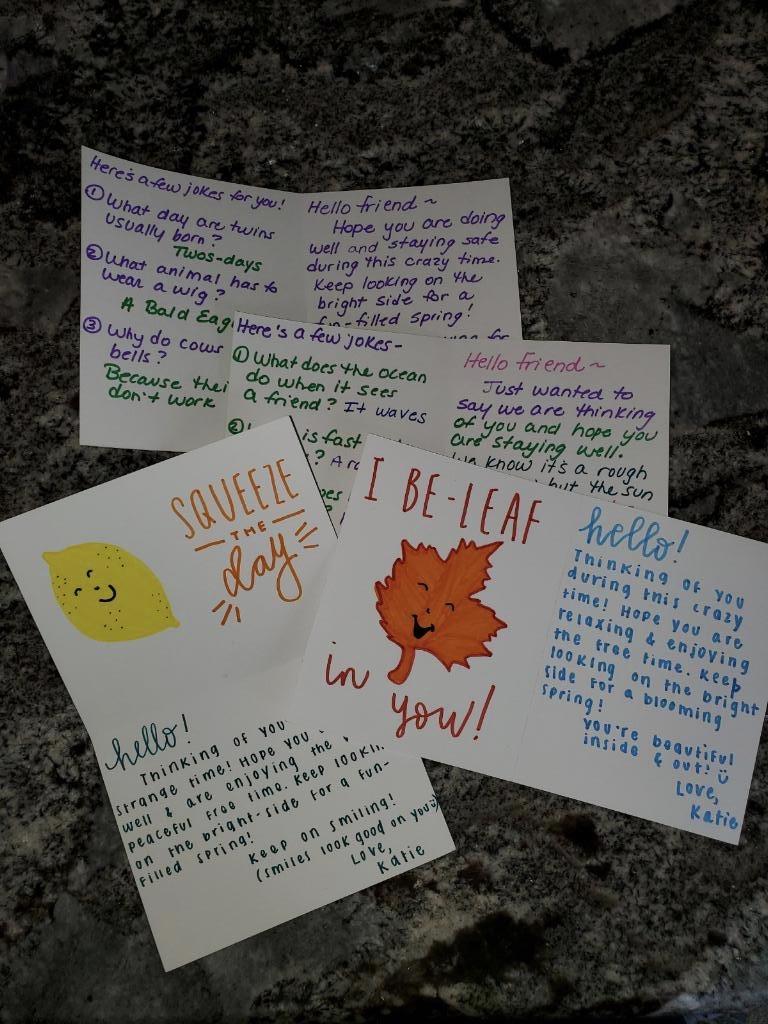 Here's a few jokes for you!
① What day are twins
usually born?
Twos-days
② What animal has to
wear a wig?
A Bald Eag
③ Why do cows
bells?
Because thei
don't work
Hello friend ~
Hope you are doing
well and staying safe
during this crazy time.
Keep looking on the
bright side for a
fun-filled spring!
for
Here's a few jokes -
① What does the ocean
do when it sees
a friend? It waves
②
is fast
?
Hello friend ~
Just wanted to
say we are thinking
of you and hope you
are staying well.
We know it's a rough
but the sun
SQUEEZE
THE
day
hello!
Thinking of you
strange time! Hope you
well & are enjoying the
peaceful free time. Keep lookin
on the bright-side for a fun-
filled spring!
Keep on smiling!
(smiles look good on you)
Love,
Katie
I BE-LEAF
in you!
hello!
Thinking of you
during this crazy
time! Hope you are
relaxing & enjoying
the free time. Keep
looking on the bright
side for a blooming
spring!
You're beautiful
inside & out! ü
Love,
Katie